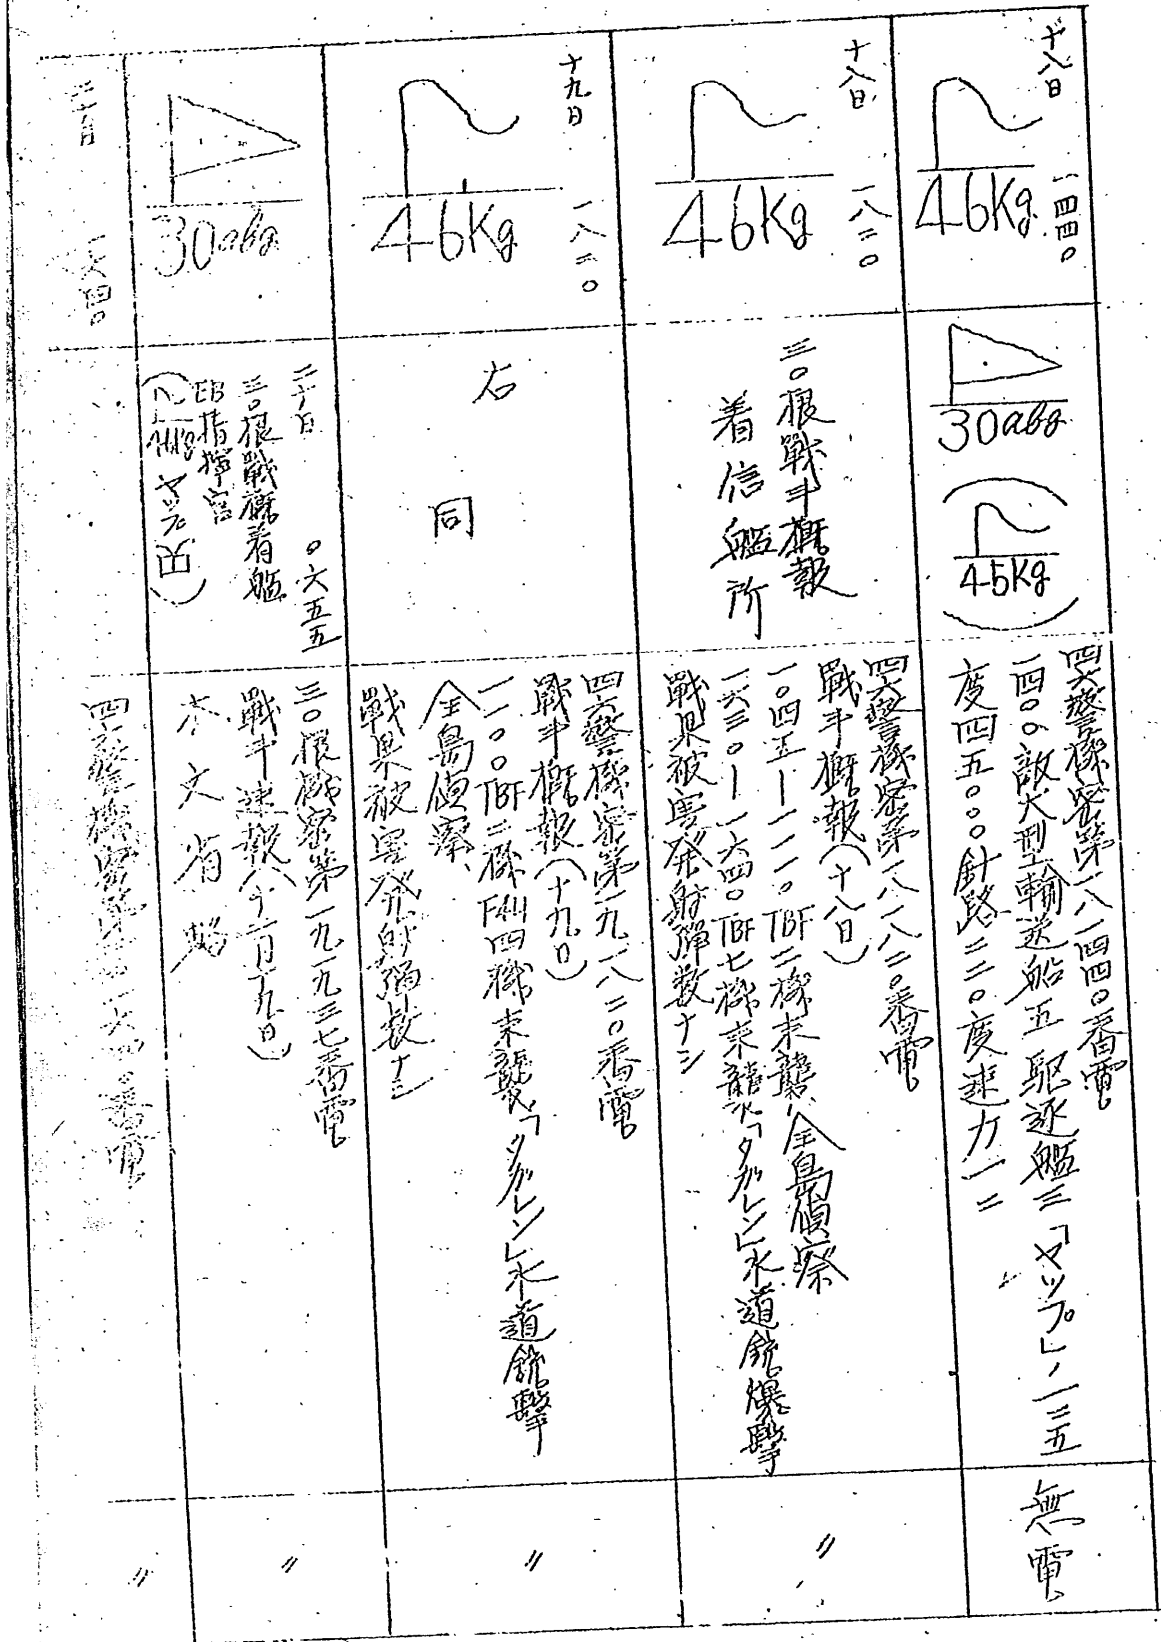 十八日 一四四〇
46Kg
30abg
45Kg
四六警機密第一八一四四〇番電
一四〇〇敵大型輸送船五駆逐艦三「マップ」ノ一三五
度四五〇〇〇針路二二〇度速力一二
無電
十八日 一八二〇
46Kg
三〇根戦斗概報
着信艦所
四六警機密第一八一八二〇番電
戦斗概報(十八日)
一〇四五ー一一一〇TBF二機来襲全島偵察
一六三〇ー一六四〇TBF七機来襲「タガレン」水道銃爆撃
戦果被害発射弾数ナシ
〃
十九日 一八二〇
46Kg
右同
四六警機密第一九一八二〇番電
戦斗概報(十九日)
一一〇〇TBF二機F4U四機来襲「タガレン」水道銃撃
全島偵察、
戦果被害発射弾数ナシ
〃
30abg
二十日 〇六五五
三〇根戦概着艦
EB指揮官
三〇根機密第一九一九三七番電
戦斗速報(十二月十九日)
本文省略
〃
二十日 一六四〇
四六警機密第二〇一六四〇番電
〃